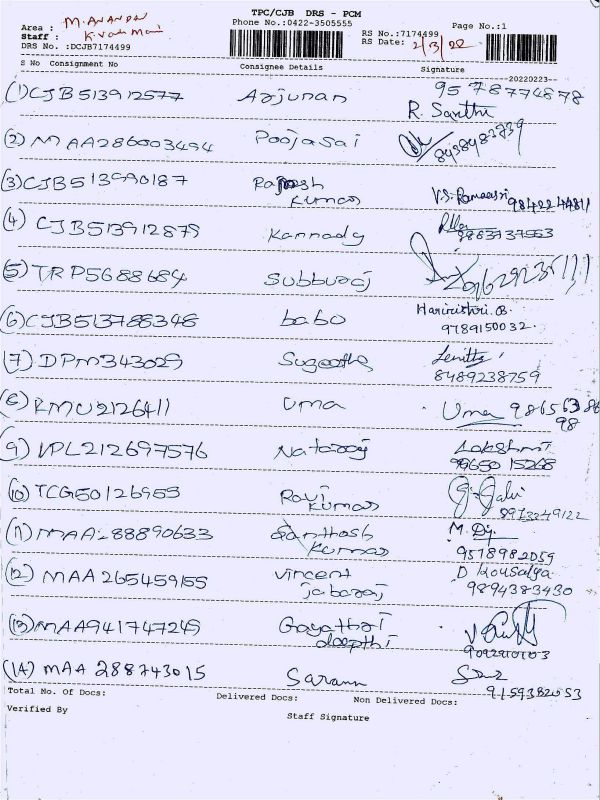 TPC/CJB DRS - PCM
Phone No.:0422-3505555
Page No.:1
Area : M. ANANDAN
Staff :
DRS No. :DCJB7174499
RS No.:7174499
RS Date: 2/3/22
S No Consignment No Consignee Details Signature
20220223
(1) CJB513912577 Arjunan 9578774878
R. Santhi
(2) MAA286003494 Poojasai 8438483739
(3) CJB513990187 Rajesh Kumar 9842244811
(4) CJB513912879 Kannady
(5) TRP5688684 Subburaj
(6) CJB513788348 babo Harinishri.B.
9789150032
(7) DPM343029 Sugeetha
8489238759
(8) KMU2126411 Uma Uma 9865638698
(9) VPL212697576 Nataraj Lakshmi
99650 15268
(10) TCG50126953 Ravi Kumar
(11) MAA288890633 Santhosh Kumar M. Dy.
9578982059
(12) MAA265459155 Vincent jabaraj D Kousalya
9894383430
(13) MAA941747249 Gayathri deepthi
(14) MAA 288743015 Sarann
9159382053
Total No. Of Docs: Delivered Docs: Non Delivered Docs:
Verified By Staff Signature